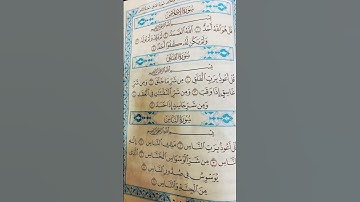 سُورَةُ الإِخْلَاصِ
قُلْ هُوَ اللَّهُ أَحَدٌ ۝ اللَّهُ الصَّمَدُ ۝ لَمْ يَلِدْ وَلَمْ يُولَدْ ۝
وَلَمْ يَكُن لَّهُ كُفُوًا أَحَدٌ ۝
سُورَةُ الْفَلَقِ
قُلْ أَعُوذُ بِرَبِّ الْفَلَقِ ۝ مِن شَرِّ مَا خَلَقَ ۝ وَمِن شَرِّ
غَاسِقٍ إِذَا وَقَبَ ۝ وَمِن شَرِّ النَّفَّاثَاتِ فِي الْعُقَدِ ۝
وَمِن شَرِّ حَاسِدٍ إِذَا حَسَدَ ۝
سُورَةُ النَّاسِ
قُلْ أَعُوذُ بِرَبِّ النَّاسِ ۝ مَلِكِ النَّاسِ ۝ إِلَٰهِ
النَّاسِ ۝ مِن شَرِّ الْوَسْوَاسِ الْخَنَّاسِ ۝ الَّذِي
يُوَسْوِسُ فِي صُدُورِ النَّاسِ ۝
مِنَ الْجِنَّةِ وَالنَّاسِ ۝